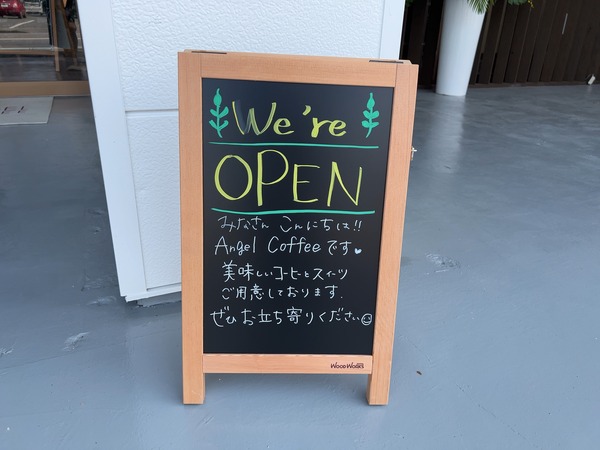 We're
OPEN
みなさん こんにちは!!
Angel Coffeeです♥
美味しいコーヒーとスイーツ
ご用意しております.
ぜひお立ち寄りください☺